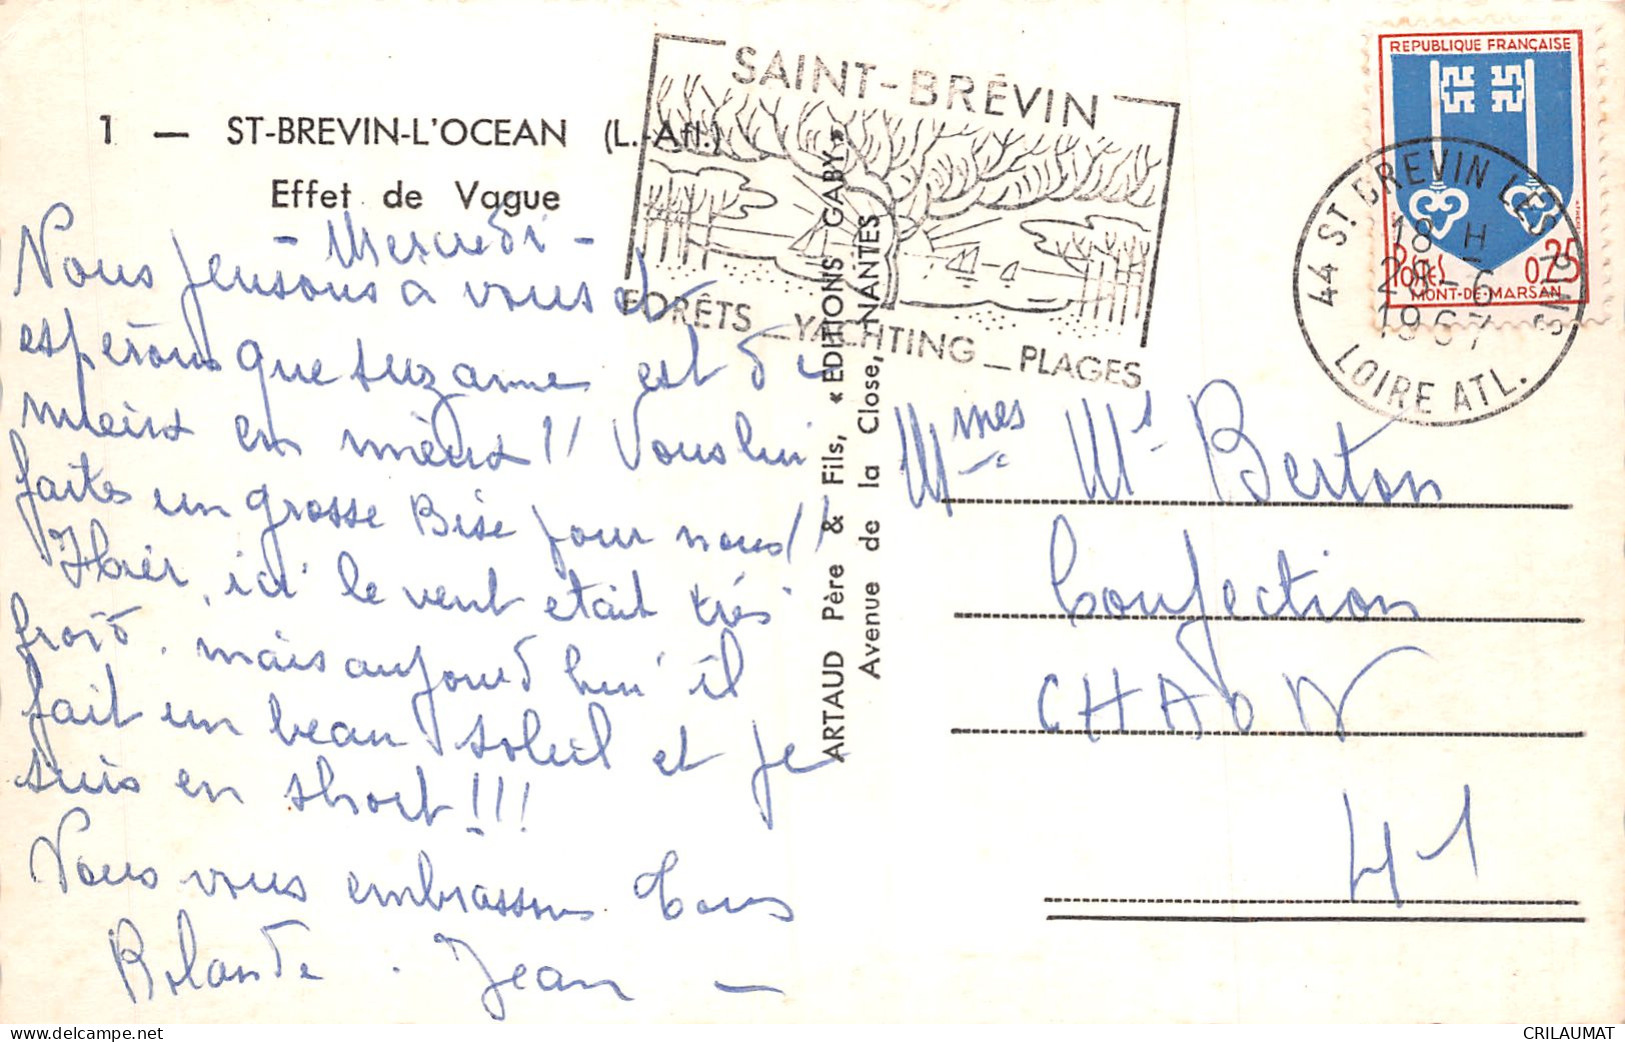 1 — ST-BREVIN-L'OCEAN (L.-Atl.)
Effet de Vague
- Mercredi -
Nous pensons à vous et
espérons que suzanne est de
mieux en mieux !! Vous lui
faites un grosse Bise pour nous !!
Hier, ici le vent etait très
froid. mais aujourd hui il
fait un beau soleil et je
suis en short !!!
Nous vous embrassons Tous
Rolande . Jean —
ARTAUD Père & Fils, « EDITIONS GABY »
Avenue de la Close, NANTES
SAINT-BRÉVIN
FORÊTS _ YACHTING _ PLAGES
REPUBLIQUE FRANÇAISE
Postes 0,25
MONT-DE-MARSAN
44 ST BREVIN LES PINS
18 H
28 - 6
1967
LOIRE ATL.
Mmes Mr Berton
Confection
CHAON
41
www.delcampe.net
CRILAUMAT